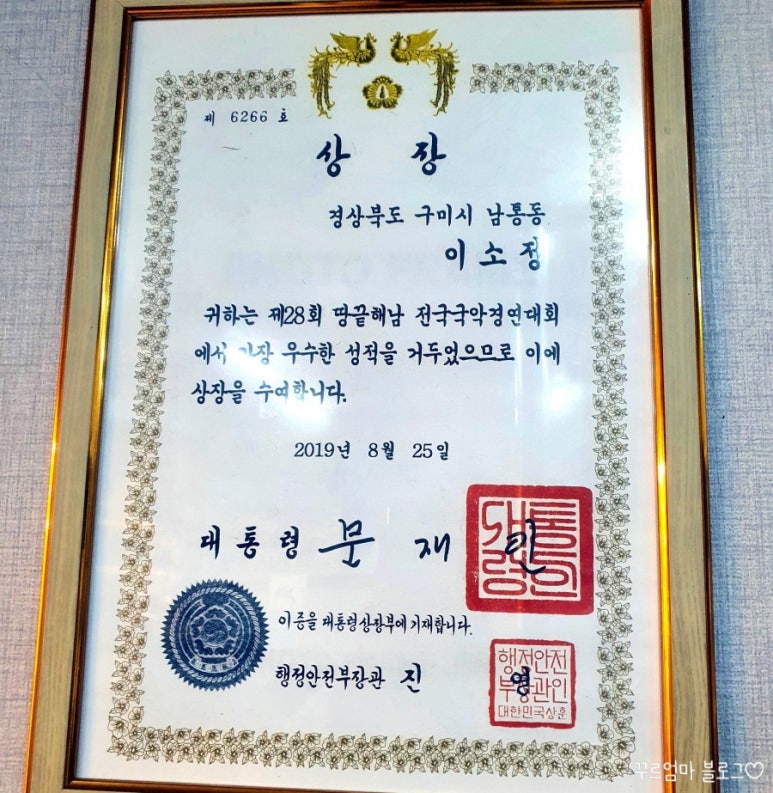 제 6266 호
상 장
경상북도 구미시 남통동
이소정
귀하는 제28회 땅끝해남 전국국악경연대회
에서 가장 우수한 성적을 거두었으므로 이에
상장을 수여합니다.
2019년 8월 25일
대통령 문재인
대통령의인
이 증을 대통령상장부에 기재합니다.
행정안전부장관 진영
행정안전
부장관인
대한민국상훈
꾸르엄마 블로그♡